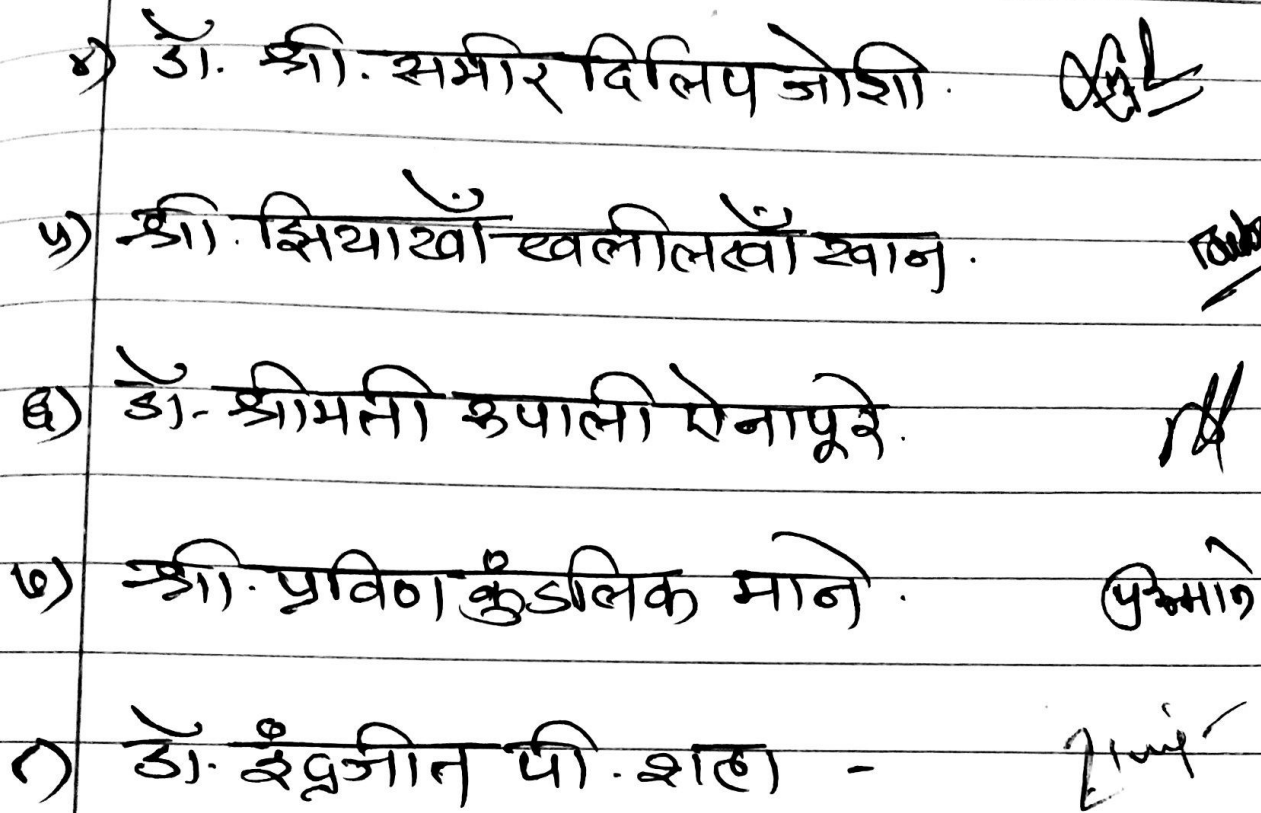 ४) डॉ. श्री. समीर दिलिप जोशी.
५) श्री. झियाखाँ खलीलखाँ खान.
६) डॉ- श्रीमती रुपाली ऐनापूरे.
७) श्री. प्रविण कुंडलिक माने. प्रकमाने
८) डॉ. इंद्रजीत पी. शहा -